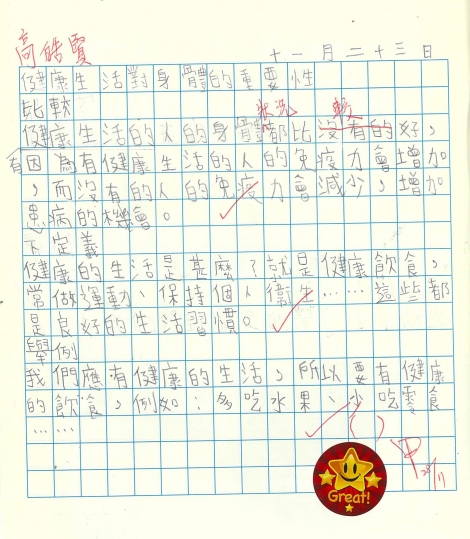 高皓賢
十一月二十三日
健康生活對身體的重要性
比較
狀況 較
健康生活的人的身體都比沒有的好，
有因為有健康生活的人的免疫力會增加
，而沒有的人的免疫力會減少，增加
患病的機會。
下定義
健康的生活是甚麼？就是健康飲食，
常做運動、保持個人衛生……這些都
是良好的生活習慣。
舉例
我們應有健康的生活，所以要有健康
的飲食，例如：多吃水果、少吃零食
……
甲
28/11
Great!